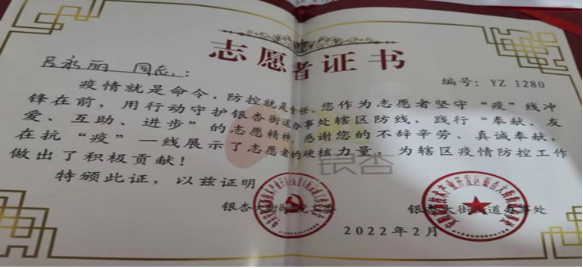 志愿者证书
编号: YZ 1280
吕永丽 同志:
疫情就是命令,防控就是责任,您作为志愿者坚守“疫”线冲
锋在前,用行动守护银杏街道办事处辖区防线,践行“奉献、友
爱、互助、进步”的志愿精神,感谢您的不辞辛劳、真诚奉献,
在抗“疫”一线展示了志愿者的硬核力量,为辖区疫情防控工作
做出了积极贡献!
特颁此证,以兹证明
银杏
银杏大街街道办事处
2022年2月